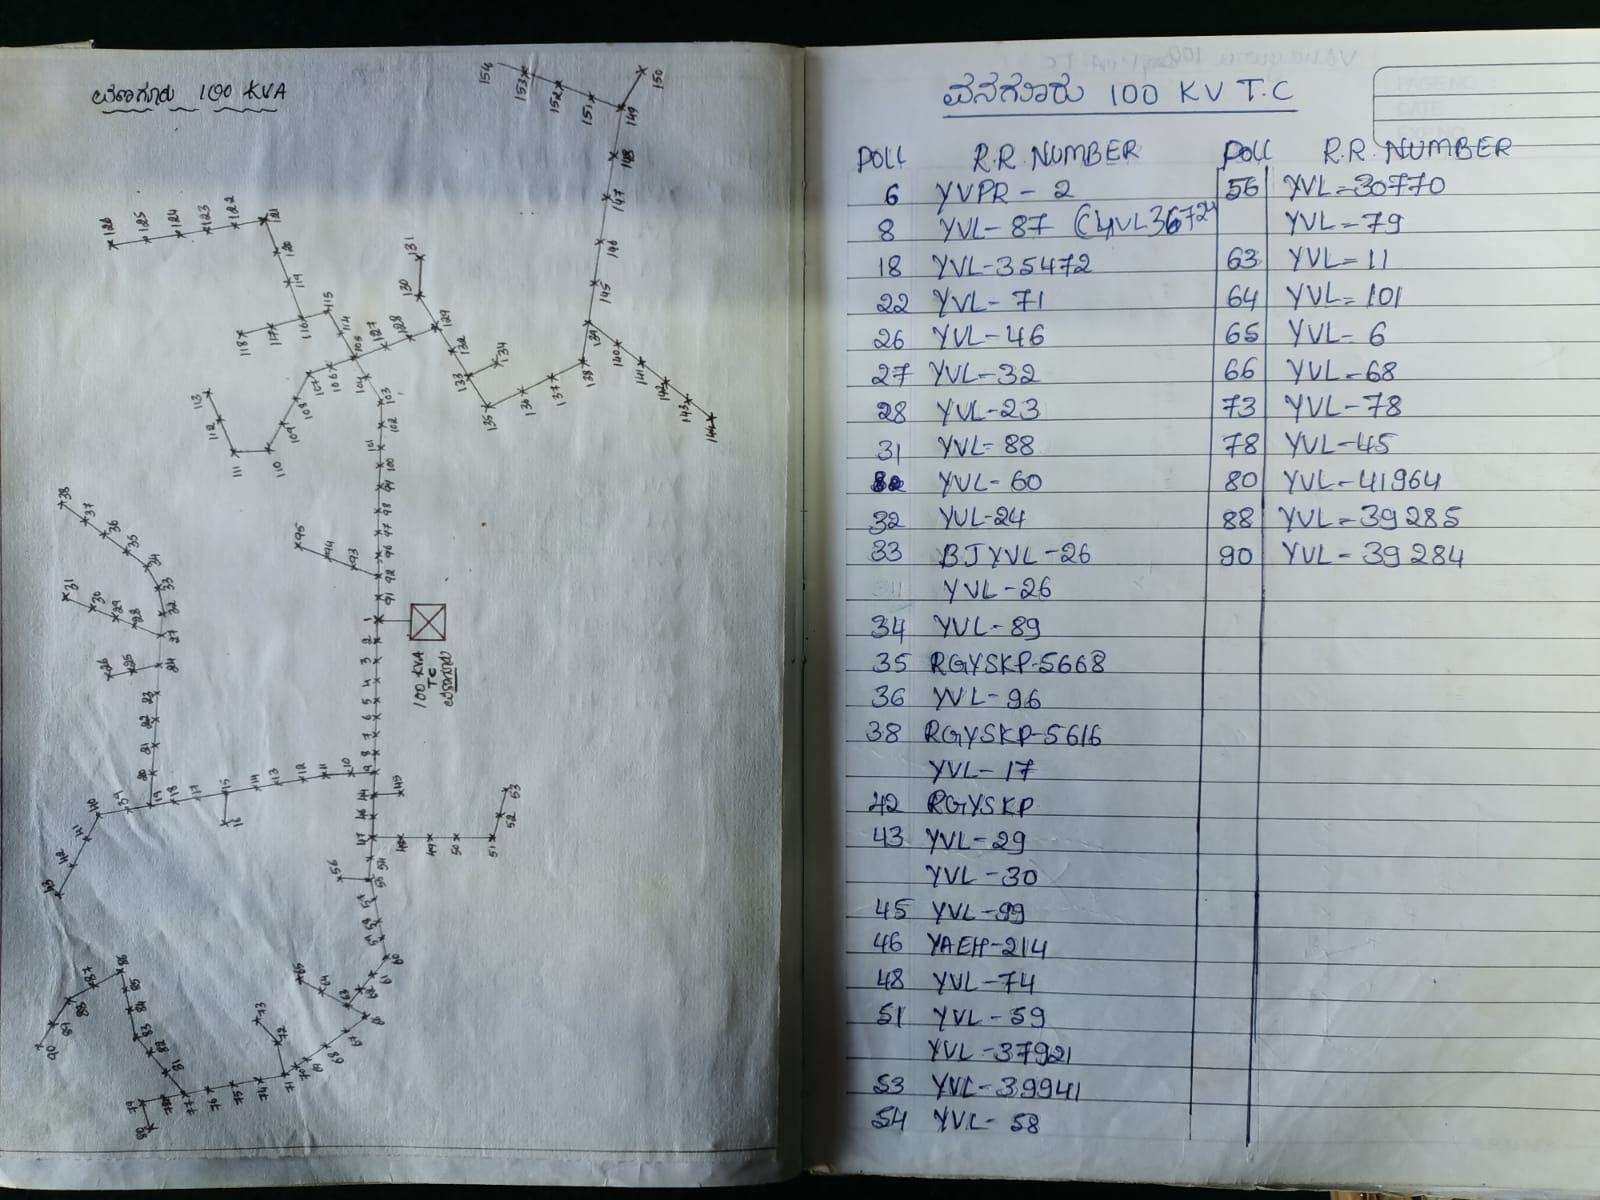 ವಳಗೂರು 100 KVA
154
153
152
151
149
150
148
147
146
145
139
140
141
142
143
144
138
137
136
135
134
133
132
129
130
131
128
127
126
125
124
123
122
121
120
119
118
117
116
115
114
105
104
103
102
101
100
99
98
97
96
95
94
93
92
91
106
107
108
109
110
111
112
113
1
2
3
4
5
6
7
8
9
100 KVA
TC
10
11
12
13
14
15
16
17
18
19
20
21
22
23
24
25
26
27
28
29
30
31
32
33
34
35
36
37
38
39
40
41
42
43
44
45
46
47
48
49
50
51
52
53
54
55
56
57
58
59
60
61
62
63
64
65
66
67
68
69
70
71
72
73
74
75
76
77
78
79
80
81
82
83
84
85
86
87
88
89
90
ವನಗೂರು 100 KV T.C
POLL R.R. NUMBER POLL R.R. NUMBER
PAGE NO
DATE
6 YVPR - 2 56 YVL=30770
8 YVL- 87 (4VL3672 YVL=79
18 YVL-35472 63 YVL=11
22 YVL- 71 64 YVL=101
26 YVL-46 65 YVL- 6
27 YVL-32 66 YVL-68
28 YVL-23 73 YVL-78
31 YVL-88 78 YVL-45
YVL-60 80 YVL-41964
32 YVL-24 88 YVL=39285
33 BJYVL-26 90 YVL-39284
YVL-26
34 YVL-89
35 RGYSKP-5668
36 YVL-96
38 RGYSKP-5616
YVL-17
42 RGYSKP
43 YVL-29
YVL-30
45 YVL-99
46 YAEH-214
48 YVL-74
51 YVL-59
YVL-37921
53 YVL-39941
54 YVL-58